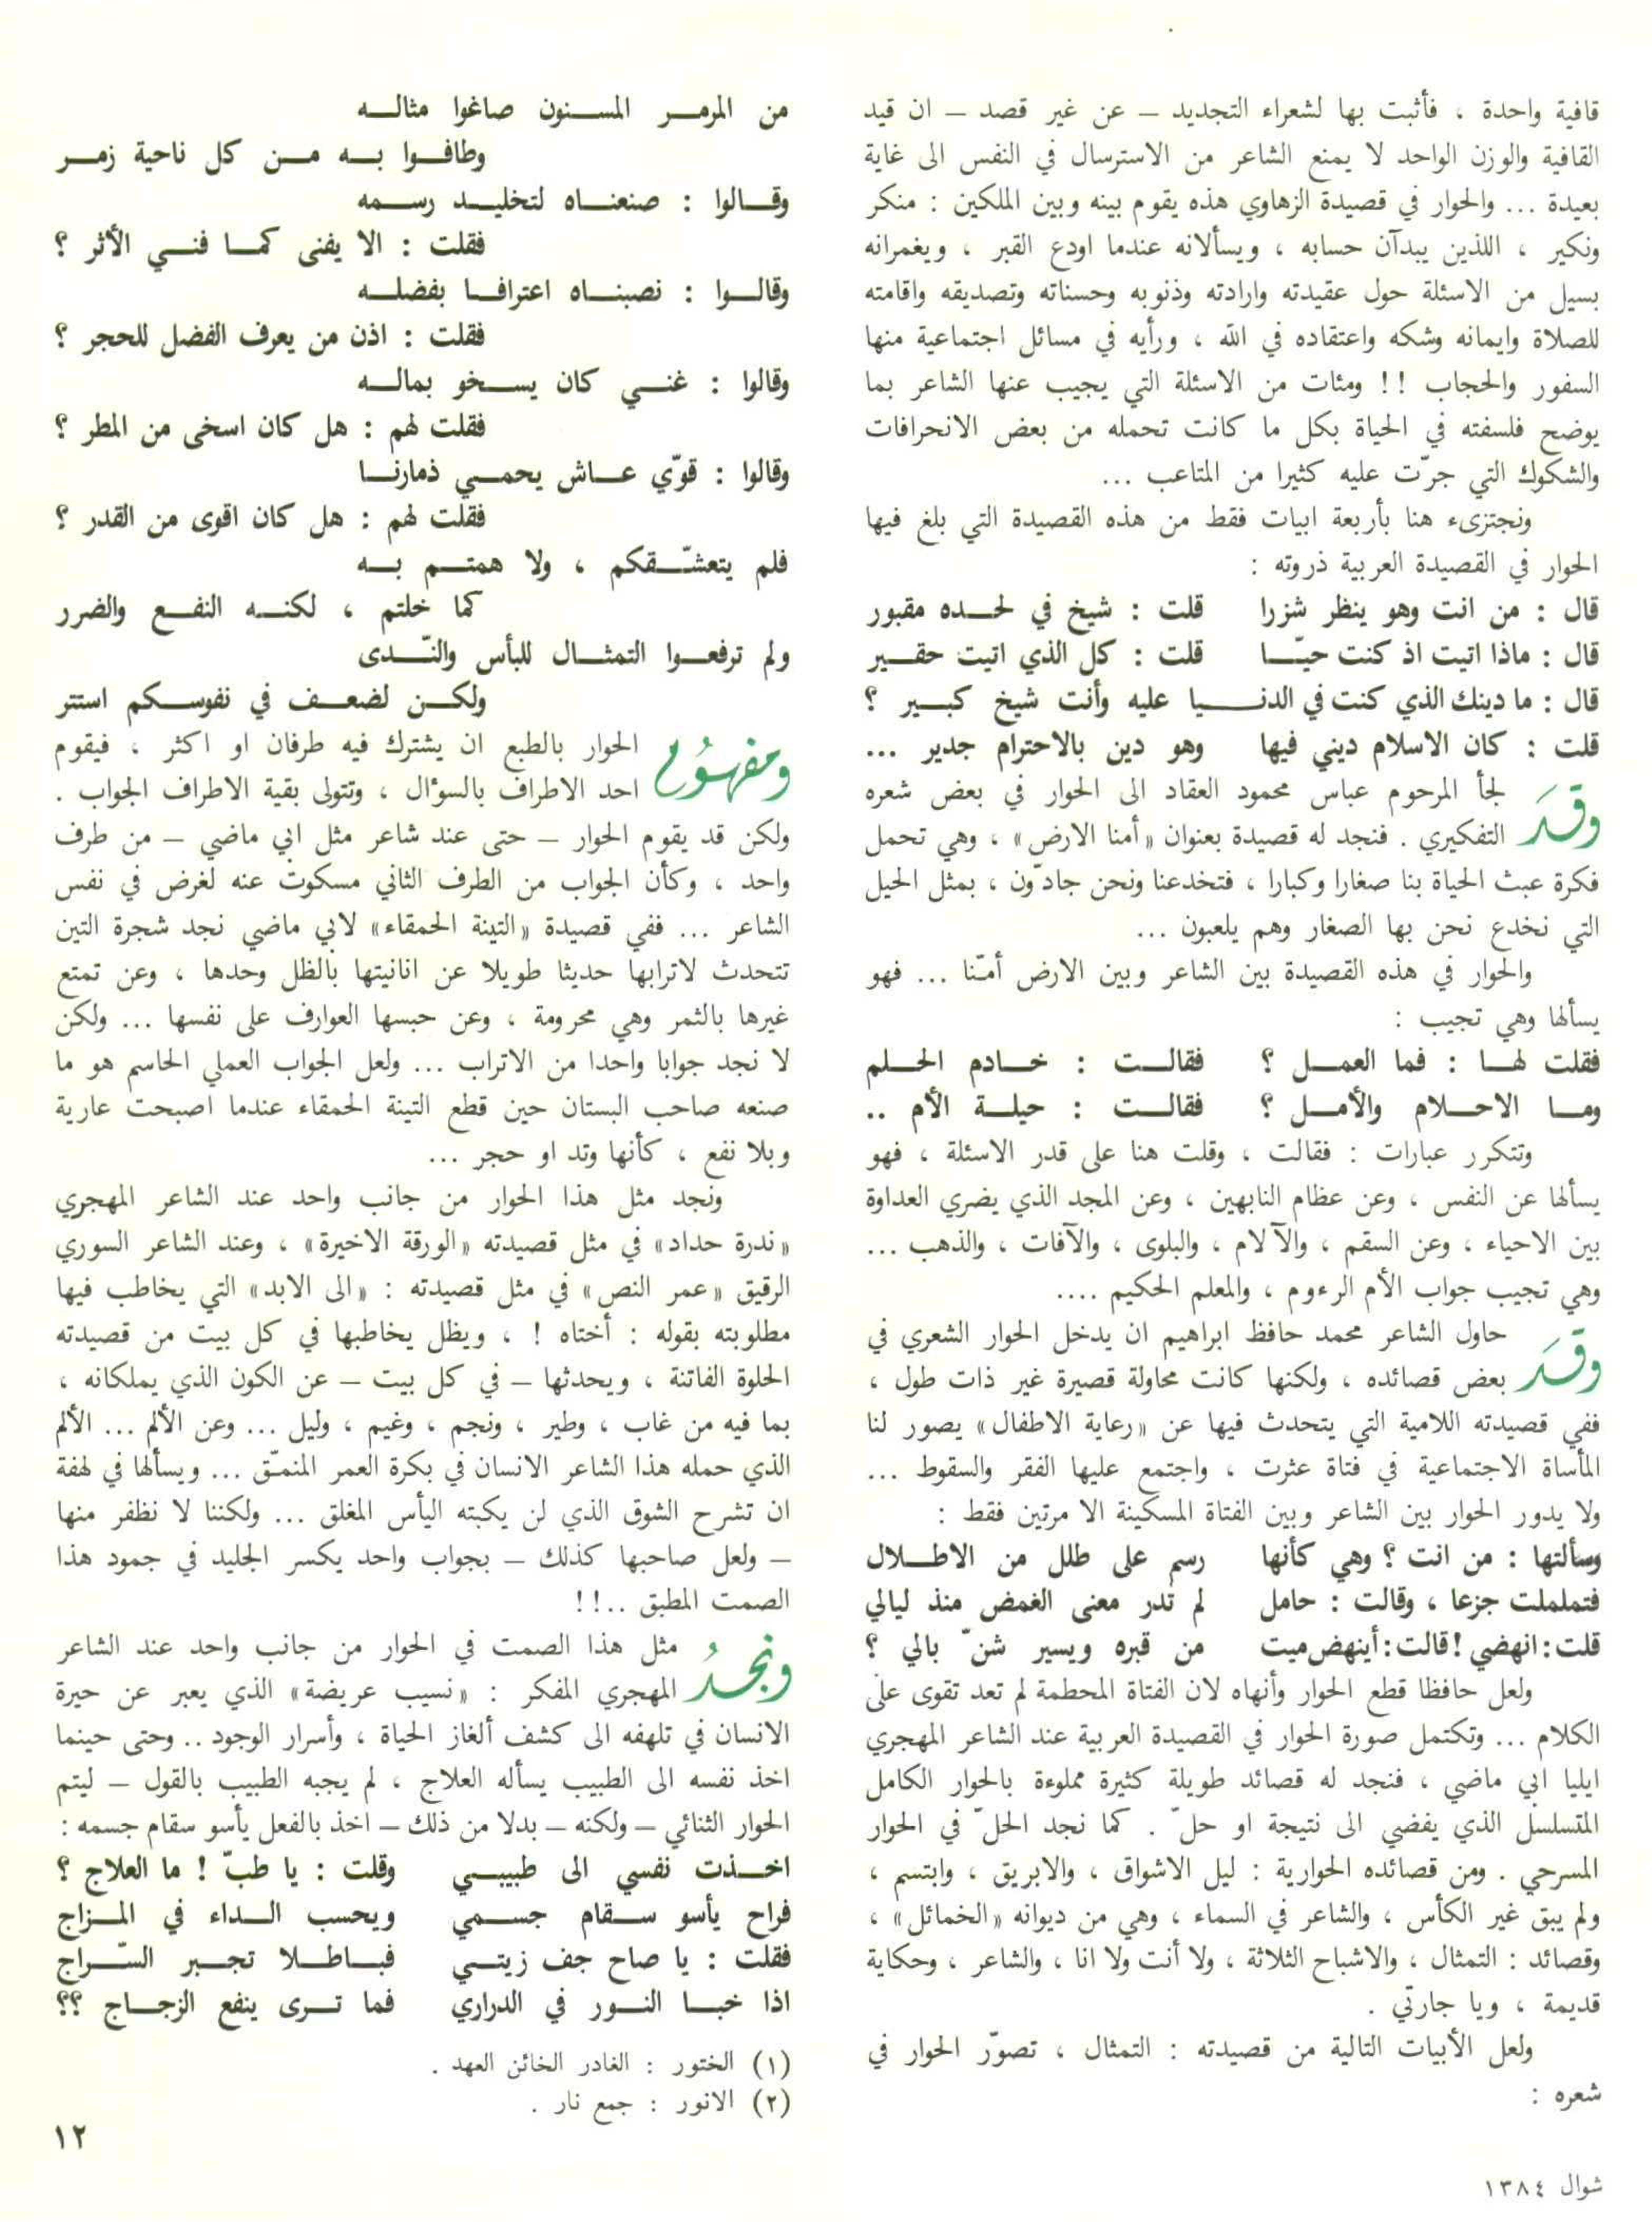 قافية واحدة ، فأثبت بها لشعراء التجديد — عن غير قصد — ان قيد
القافية والوزن الواحد لا يمنع الشاعر من الاسترسال في النفس الى غاية
بعيدة ... والحوار في قصيدة الزهاوي هذه يقوم بينه وبين الملكين : منكر
ونكير ، اللذين يبدآن حسابه ، ويسألانه عندما اودع القبر ، ويغمرانه
بسيل من الاسئلة حول عقيدته وارادته وذنوبه وحسناته وتصديقه واقامته
للصلاة وايمانه وشكه واعتقاده في الله ، ورأيه في مسائل اجتماعية منها
السفور والحجاب !! ومئات من الاسئلة التي يجيب عنها الشاعر بما
يوضح فلسفته في الحياة بكل ما كانت تحمله من بعض الانحرافات
والشكوك التي جرّت عليه كثيرا من المتاعب ...
ونجتزىء هنا بأربعة ابيات فقط من هذه القصيدة التي بلغ فيها
الحوار في القصيدة العربية ذروته :
قال : من انت وهو ينظر شزرا قلت : شيخ في لحده مقبور
قال : ماذا اتيت اذ كنت حيّا قلت : كل الذي اتيت حقير
قال : ما دينك الذي كنت في الدنيا عليه وأنت شيخ كبير ؟
قلت : كان الاسلام ديني فيها وهو دين بالاحترام جدير ...
وقد لجأ المرحوم عباس محمود العقاد الى الحوار في بعض شعره
التفكيري . فنجد له قصيدة بعنوان «أمنا الارض» ، وهي تحمل
فكرة عبث الحياة بنا صغارا وكبارا ، فتخدعنا ونحن جادّون ، بمثل الحيل
التي نخدع نحن بها الصغار وهم يلعبون ...
والحوار في هذه القصيدة بين الشاعر وبين الارض أمّنا ... فهو
يسألها وهي تجيب :
فقلت لها : فما العمل ؟ فقالت : خادم الحلم
وما الاحلام والأمل ؟ فقالت : حيلة الأم ..
وتتكرر عبارات : فقالت ، وقلت هنا على قدر الاسئلة ، فهو
يسألها عن النفس ، وعن عظام النابهين ، وعن المجد الذي يضري العداوة
بين الاحياء ، وعن السقم ، والآلام ، والبلوى ، والآفات ، والذهب ...
وهي تجيب جواب الأم الرءوم ، والمعلم الحكيم ....
وقد حاول الشاعر محمد حافظ ابراهيم ان يدخل الحوار الشعري في
بعض قصائده ، ولكنها كانت محاولة قصيرة غير ذات طول ،
ففي قصيدته اللامية التي يتحدث فيها عن «رعاية الاطفال» يصور لنا
المأساة الاجتماعية في فتاة عثرت ، واجتمع عليها الفقر والسقوط ...
ولا يدور الحوار بين الشاعر وبين الفتاة المسكينة الا مرتين فقط :
وسألتها : من انت ؟ وهي كأنها رسم على طلل من الاطلال
فتململت جزعا ، وقالت : حامل لم تدر معنى الغمض منذ ليالي
قلت : انهضي ! قالت : أينهض ميت من قبره ويسير شنّ بالي ؟
ولعل حافظا قطع الحوار وأنهاه لان الفتاة المحطمة لم تعد تقوى على
الكلام ... وتكتمل صورة الحوار في القصيدة العربية عند الشاعر المهجري
ايليا ابي ماضي ، فنجد له قصائد طويلة كثيرة مملوءة بالحوار الكامل
المتسلسل الذي يفضي الى نتيجة او حلّ . كما نجد الحلّ في الحوار
المسرحي . ومن قصائده الحوارية : ليل الاشواق ، والابريق ، وابتسم ،
ولم يبق غير الكأس ، والشاعر في السماء ، وهي من ديوانه «الخمائل» ،
وقصائد : التمثال ، والاشباح الثلاثة ، ولا أنت ولا انا ، والشاعر ، وحكاية
قديمة ، ويا جارتي .
ولعل الأبيات التالية من قصيدته : التمثال ، تصوّر الحوار في
شعره :
من المرمر المسنون صاغوا مثاله
وطافوا به من كل ناحية زمر
وقالوا : صنعناه لتخليد رسمه
فقلت : الا يفنى كما فني الأثر ؟
وقالوا : نصبناه اعترافا بفضله
فقلت : اذن من يعرف الفضل للحجر ؟
وقالوا : غني كان يسخو بماله
فقلت لهم : هل كان اسخى من المطر ؟
وقالوا : قوّي عاش يحمي ذمارنا
فقلت لهم : هل كان اقوى من القدر ؟
فلم يتعشّقكم ، ولا همتم به
كما خلتم ، لكنه النفع والضرر
ولم ترفعوا التمثال للبأس والنّدى
ولكن لضعف في نفوسكم استتر
ومفهوُم الحوار بالطبع ان يشترك فيه طرفان او اكثر ، فيقوم
احد الاطراف بالسؤال ، وتتولى بقية الاطراف الجواب .
ولكن قد يقوم الحوار — حتى عند شاعر مثل ابي ماضي — من طرف
واحد ، وكأن الجواب من الطرف الثاني مسكوت عنه لغرض في نفس
الشاعر ... ففي قصيدة «التينة الحمقاء» لابي ماضي نجد شجرة التين
تتحدث لاترابها حديثا طويلا عن انانيتها بالظل وحدها ، وعن تمتع
غيرها بالثمر وهي محرومة ، وعن حبسها العوارف على نفسها ... ولكن
لا نجد جوابا واحدا من الاتراب ... ولعل الجواب العملي الحاسم هو ما
صنعه صاحب البستان حين قطع التينة الحمقاء عندما اصبحت عارية
وبلا نفع ، كأنها وتد او حجر ...
ونجد مثل هذا الحوار من جانب واحد عند الشاعر المهجري
«ندرة حداد» في مثل قصيدته «الورقة الاخيرة» ، وعند الشاعر السوري
الرقيق «عمر النص» في مثل قصيدته : «الى الابد» التي يخاطب فيها
مطلوبته بقوله : أختاه ! ، ويظل يخاطبها في كل بيت من قصيدته
الحلوة الفاتنة ، ويحدثها — في كل بيت — عن الكون الذي يملكانه ،
بما فيه من غاب ، وطير ، ونجم ، وغيم ، وليل ... وعن الألم ... الألم
الذي حمله هذا الشاعر الانسان في بكرة العمر المنمّق ... ويسألها في لهفة
ان تشرح الشوق الذي لن يكبته اليأس المغلق ... ولكننا لا نظفر منها
— ولعل صاحبها كذلك — بجواب واحد يكسر الجليد في جمود هذا
الصمت المطبق ..!!
ونجدُ مثل هذا الصمت في الحوار من جانب واحد عند الشاعر
المهجري المفكر : «نسيب عريضة» الذي يعبر عن حيرة
الانسان في تلهفه الى كشف ألغاز الحياة ، وأسرار الوجود .. وحتى حينما
اخذ نفسه الى الطبيب يسأله العلاج ، لم يجبه الطبيب بالقول — ليتم
الحوار الثنائي — ولكنه — بدلا من ذلك — اخذ بالفعل يأسو سقام جسمه :
اخذت نفسي الى طبيبي وقلت : يا طبّ ! ما العلاج ؟
فراح يأسو سقام جسمي ويحسب الداء في المزاج
فقلت : يا صاح جف زيتي فباطلا تجبر السّراج
اذا خبا النور في الدراري فما ترى ينفع الزجاج ؟؟
(١) الختور : الغادر الخائن العهد .
(٢) الانور : جمع نار .
١٢
شوال ١٣٨٤